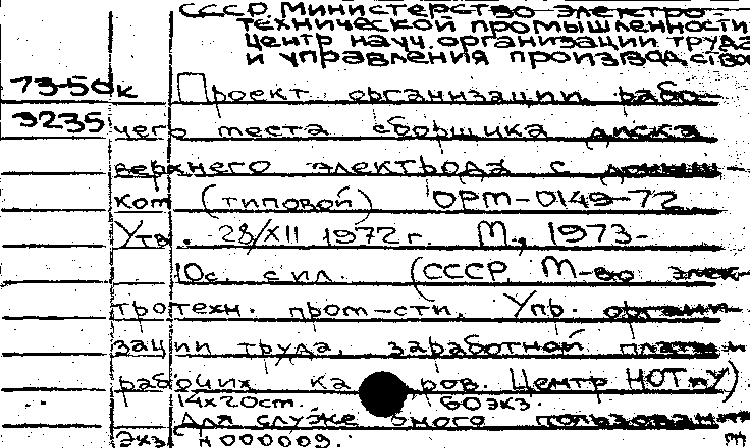 СССР. Министерство электро-
технической промышленности
Центр науч. организации труда
и управления производство
73-50к Проект организации рабо-
3235 чего места сборщика диска
верхнего электрода с
ком (типовой) ОРМ-0149-72
Утв. 28/XII 1972 г. М., 1973-
10с. с ил. (СССР. М-во элек-
тротехн. пром-сти. Упр. органи-
зации труда, заработной платы и
рабочих ка ров. Центр НОТиУ)
14х20см. 60экз.
Для служе ного пользования
Экз. н 000009.